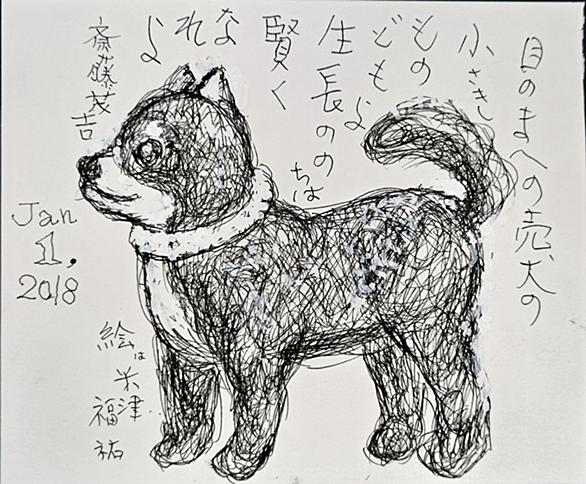 目のまへの売犬の
小さきし
もの
どもよ
生長のの
ちは
賢く
なれよ
斎藤茂吉
Jan
1,
2018
絵は
米津
福祐